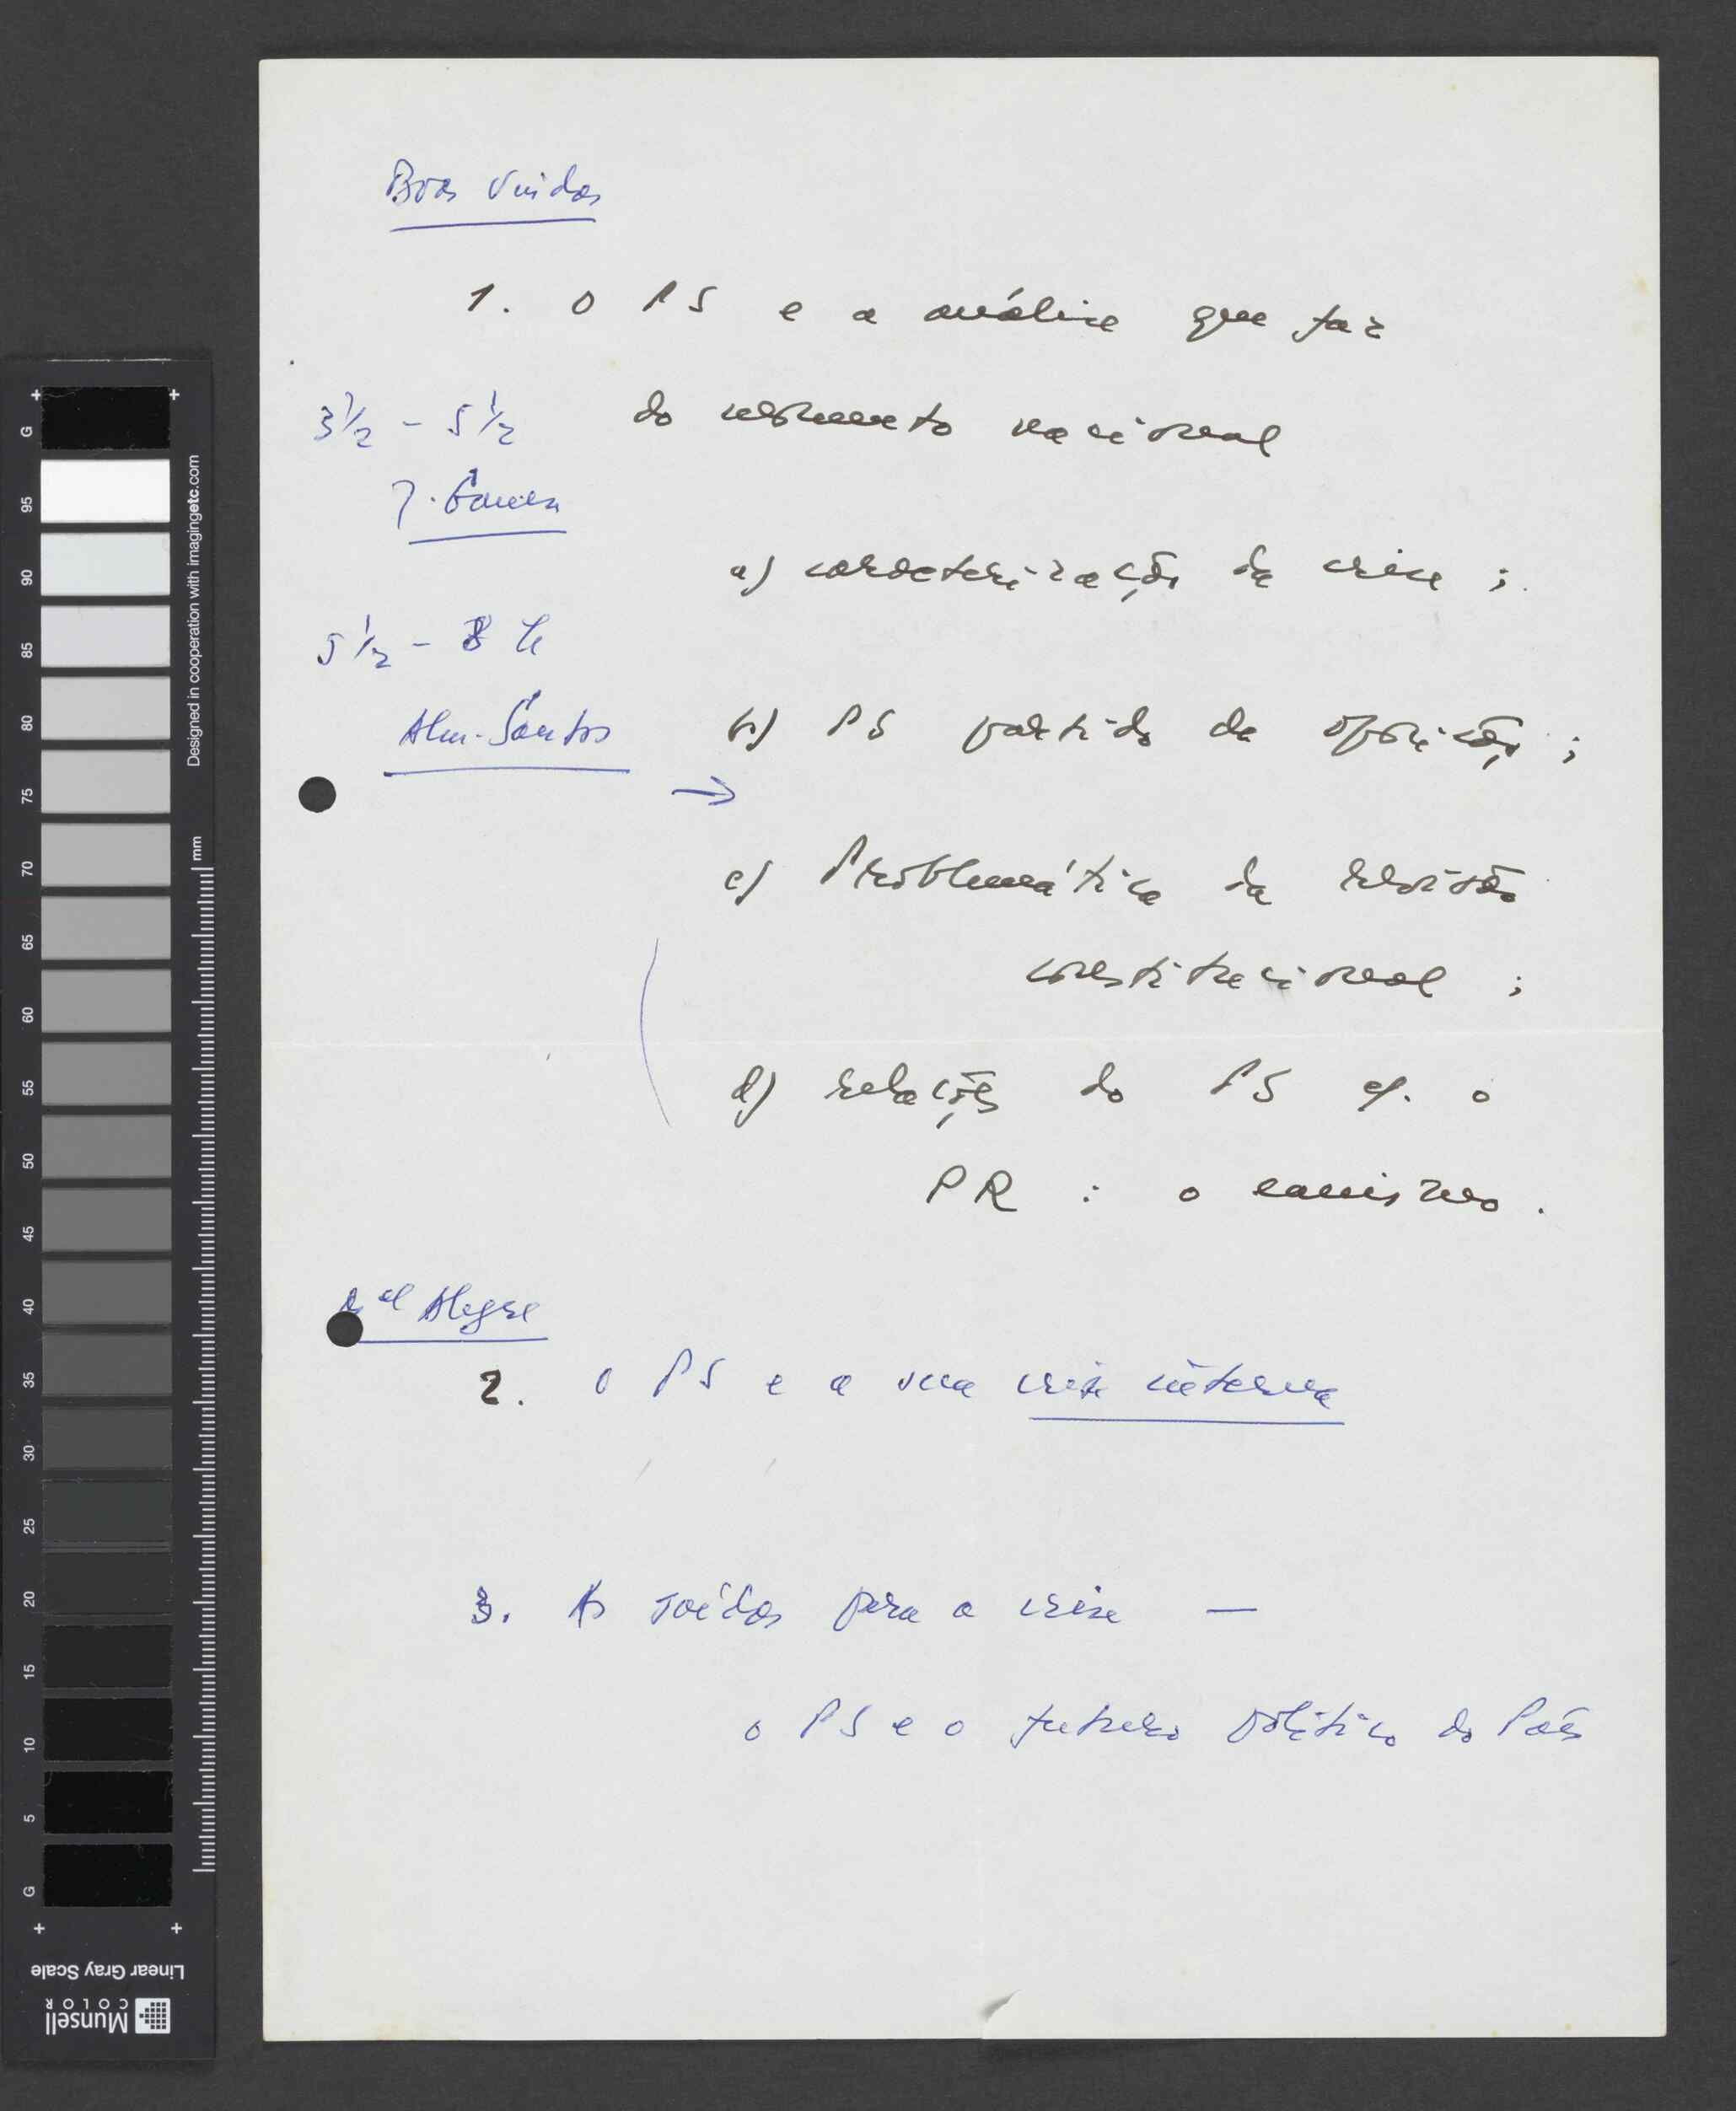 Boas Vindas
1. O PS e a análise que faz
3 1/2 - 5 1/2
do momento nacional
J. Gama
a) caracterização da crise ;
5 1/2 - 8 h
Alm. Santos
b) PS partido da oposição ;
→
c) Problemática da revisão
constitucional ;
d) relações do PS c/. o
PR : o eanismo .
el Alegre
2. O PS e a sua crise interna
3. As saídas para a crise —
o PS e o futuro político do País
G
95
90
85
80
75
70
65
60
55
50
45
40
35
30
25
20
15
10
5
G
mm
Designed in cooperation with imagingetc.com
Linear Gray Scale
Munsell
COLOR